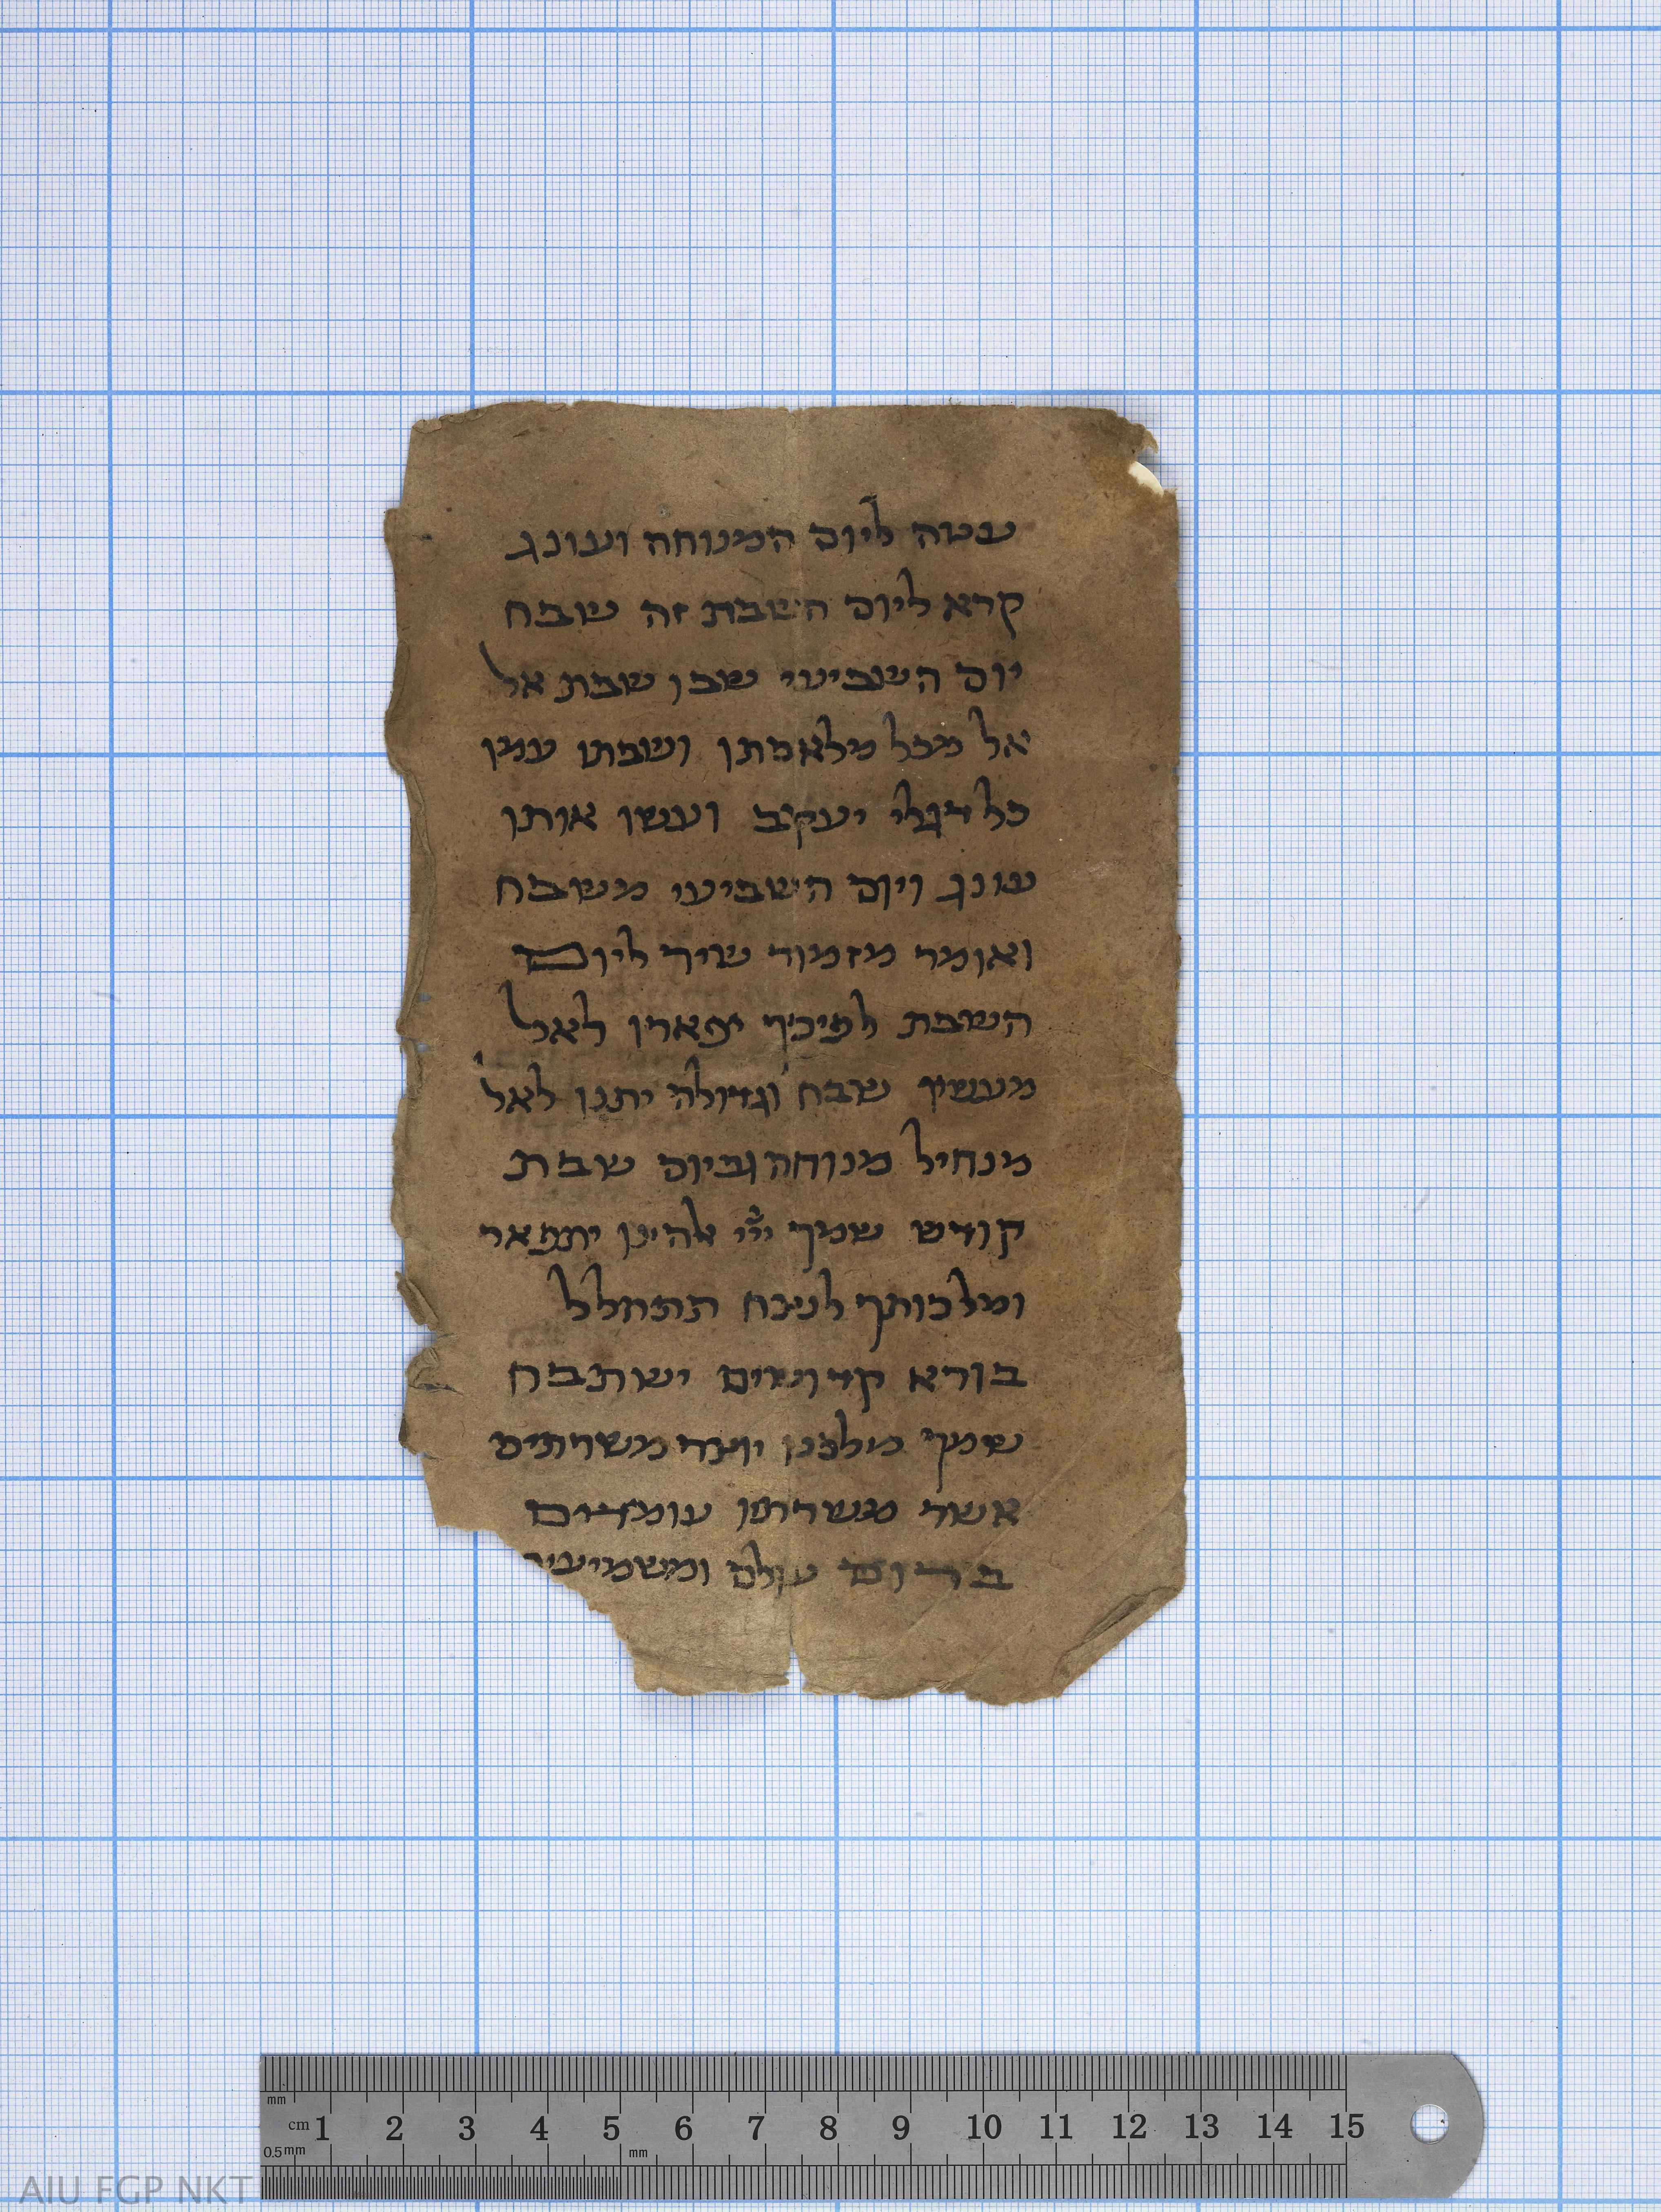 עטה ליום המנוחה ועונג
קרא ליום השבת זה שבח
יום השביעי שבו שבת אל
אל מכל מלאכתו ושבתו עמו
כל דגלי יעקב ועשו אותו
עונג ויום השביעי משבח
ואומר מזמור שיר ליום
השבת לפיכך יפארו לאל
מעשיך שבח וגדולה יתנו לאל
מנחיל מנוחה ביום שבת
קודש שמך ייי אלהינו יתפאר
ומלכותך לנצח תתהלל
בורא קדושים ישתבח
שמך מלכנו יוצר משרתים
אשר משרתיו עומדים
ברום עולם ומשמיעים
mm
cm 1 2 3 4 5 6 7 8 9 10 11 12 13 14 15
0.5mm mm
AIU FGP NKT